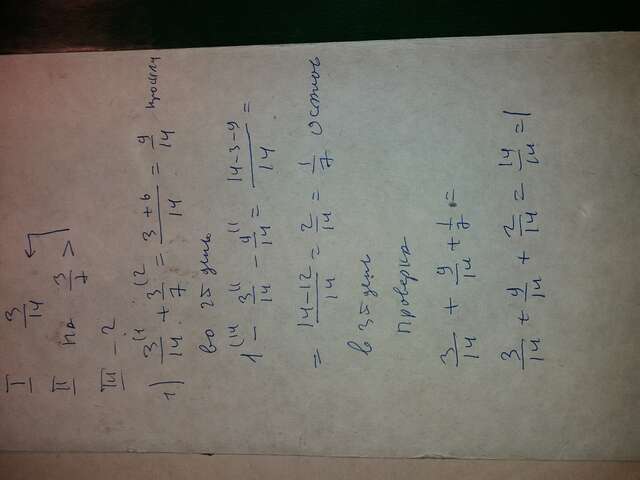 I 3/14
II на 3/7 >
III - ?
1) 3/14 + 3/7 = 3+6/14 = 9/14 прошли
во 2й день
1 - 3/14 - 9/14 = 14-3-9/14 =
= 14-12/14 = 2/14 = 1/7 Осталось
в 3й день
Проверка
3/14 + 9/14 + 1/7 =
3/14 + 9/14 + 2/14 = 14/14 = 1